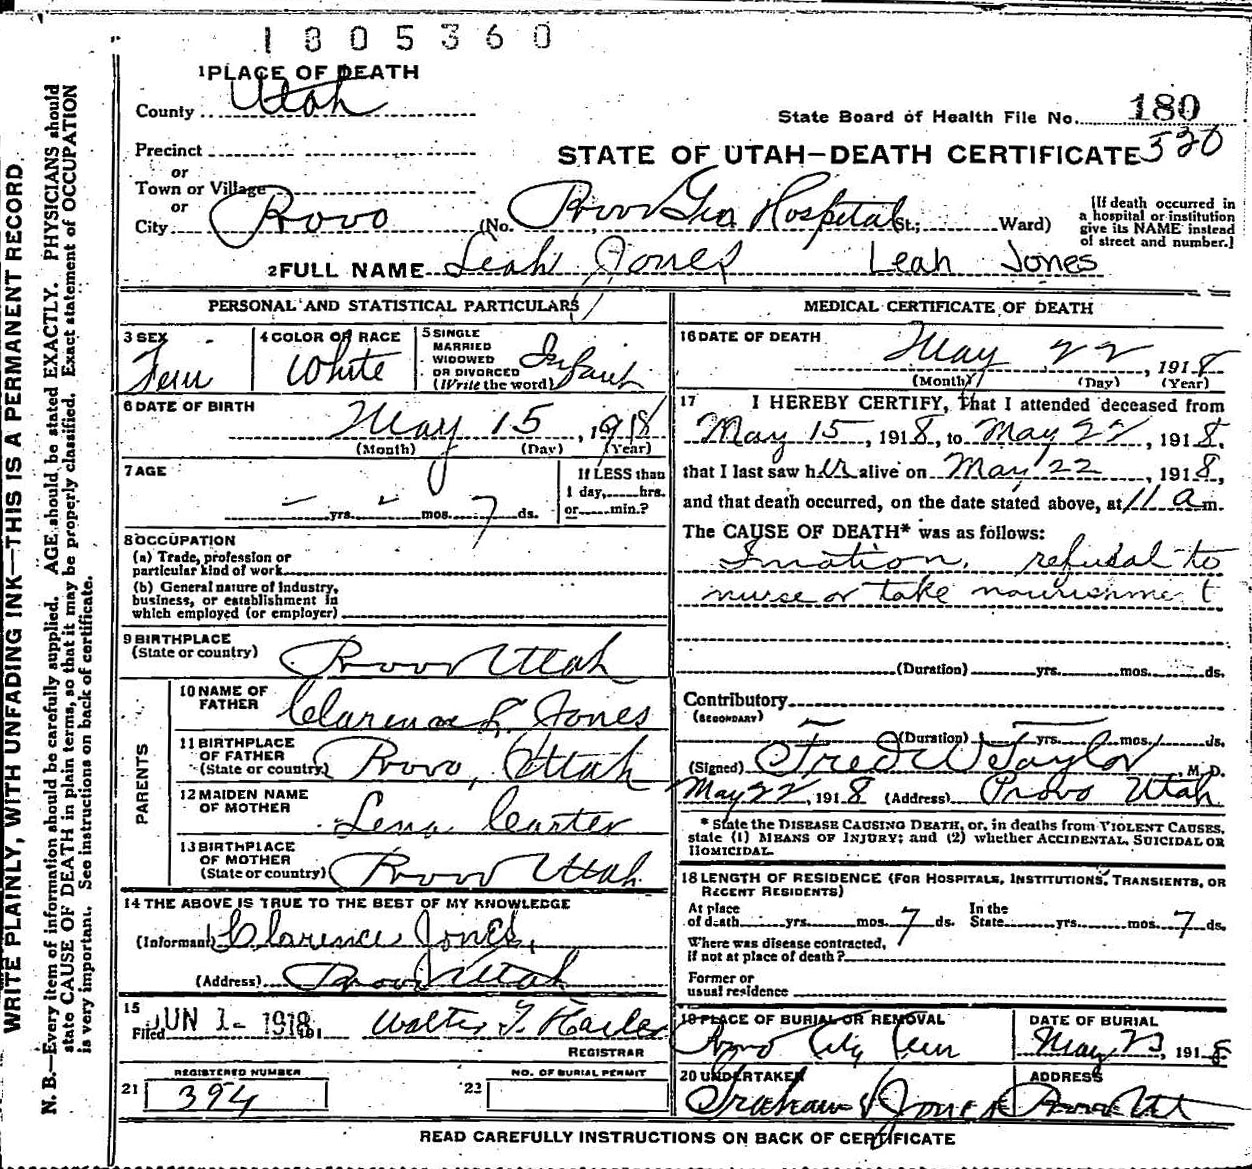 1805360
1 PLACE OF DEATH
County Utah
State Board of Health File No. 180
Precinct
or
STATE OF UTAH—DEATH CERTIFICATE 520
Town or Village
or
City Provo (No. Provo Gen Hospital St.; Ward)
[If death occurred in
a hospital or institution
give its NAME instead
of street and number.]
2 FULL NAME Leah Jones Leah Jones
PERSONAL AND STATISTICAL PARTICULARS
3 SEX
Fem
4 COLOR OR RACE
White
5 SINGLE
MARRIED
WIDOWED
OR DIVORCED
(Write the word)
Infant
6 DATE OF BIRTH
May 15, 1918
(Month) (Day) (Year)
7 AGE
- yrs. - mos. 7 ds.
If LESS than
1 day, hrs.
or min.?
8 OCCUPATION
(a) Trade, profession or
particular kind of work
(b) General nature of industry,
business, or establishment in
which employed (or employer)
9 BIRTHPLACE
(State or country)
Provo Utah
PARENTS
10 NAME OF
FATHER
Clarence L. Jones
11 BIRTHPLACE
OF FATHER
(State or country)
Provo, Utah
12 MAIDEN NAME
OF MOTHER
Lena Carter
13 BIRTHPLACE
OF MOTHER
(State or country)
Provo Utah
14 THE ABOVE IS TRUE TO THE BEST OF MY KNOWLEDGE
(Informant) Clarence Jones,
(Address) Provo Utah
15
Filed JUN 1 - 1918 191 Walter T.
REGISTRAR
REGISTERED NUMBER
21 394
NO. OF BURIAL PERMIT
22
MEDICAL CERTIFICATE OF DEATH
16 DATE OF DEATH
May 22, 1918
(Month) (Day) (Year)
17 I HEREBY CERTIFY, that I attended deceased from
May 15, 1918, to May 22, 1918,
that I last saw her alive on May 22, 1918,
and that death occurred, on the date stated above, at 11 a m.
The CAUSE OF DEATH* was as follows:
Ination, refusal to
nurse or take nourishment
(Duration) yrs. mos. ds.
Contributory
(SECONDARY)
(Duration) yrs. mos. ds.
(Signed) Fred W Taylor, M. D.
May 22, 1918 (Address) Provo Utah
* State the DISEASE CAUSING DEATH, or, in deaths from VIOLENT CAUSES,
state (1) MEANS OF INJURY; and (2) whether ACCIDENTAL, SUICIDAL OR
HOMICIDAL.
18 LENGTH OF RESIDENCE (FOR HOSPITALS, INSTITUTIONS, TRANSIENTS, OR
RECENT RESIDENTS)
At place
of death yrs. mos. 7 ds.
In the
State yrs. mos. 7 ds.
Where was disease contracted,
if not at place of death?
Former or
usual residence
19 PLACE OF BURIAL OR REMOVAL
Provo City Cem
DATE OF BURIAL
May 23, 1918
20 UNDERTAKER
Graham & Jones
ADDRESS
Provo Ut
READ CAREFULLY INSTRUCTIONS ON BACK OF CERTIFICATE
WRITE PLAINLY, WITH UNFADING INK—THIS IS A PERMANENT RECORD.
N. B.—Every item of information should be carefully supplied. AGE should be stated EXACTLY. PHYSICIANS should
state CAUSE OF DEATH in plain terms, so that it may be properly classified. Exact statement of OCCUPATION
is very important. See instructions on back of certificate.